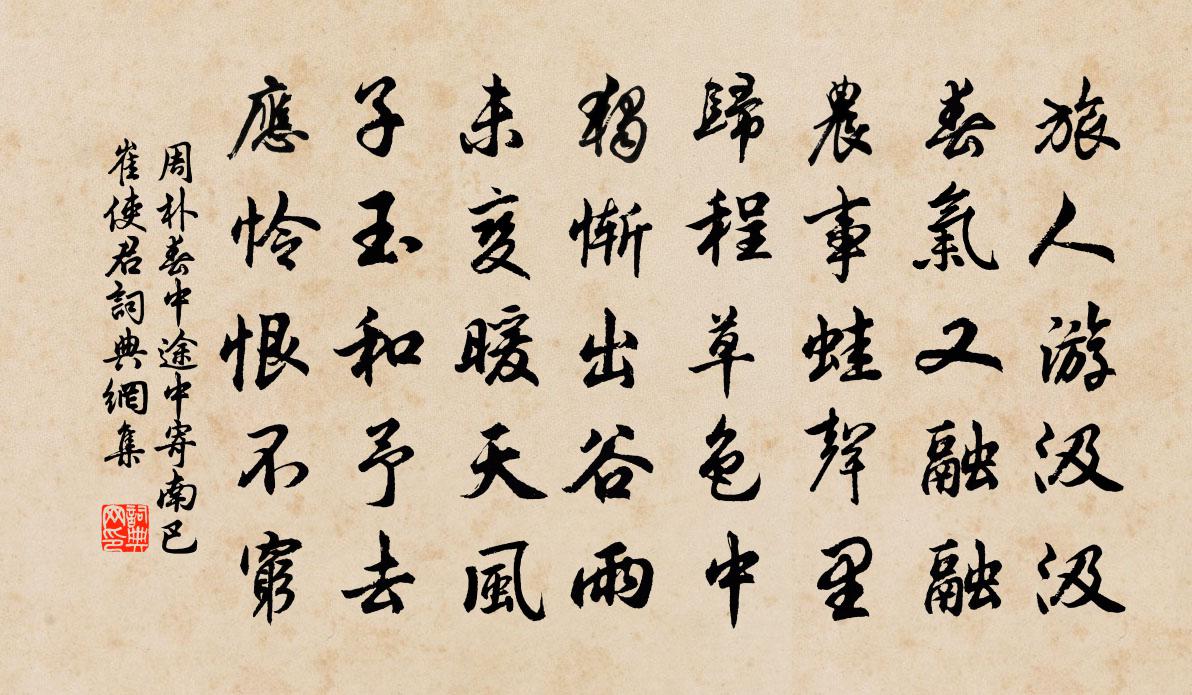 旅人游汲汲
春氣又融融
農事蛙聲里
歸程草色中
獨慚出谷雨
未變暖天風
子玉和予去
應憐恨不窮
周朴春中途中寄南巴
崔使君詞典網集
詞典网印